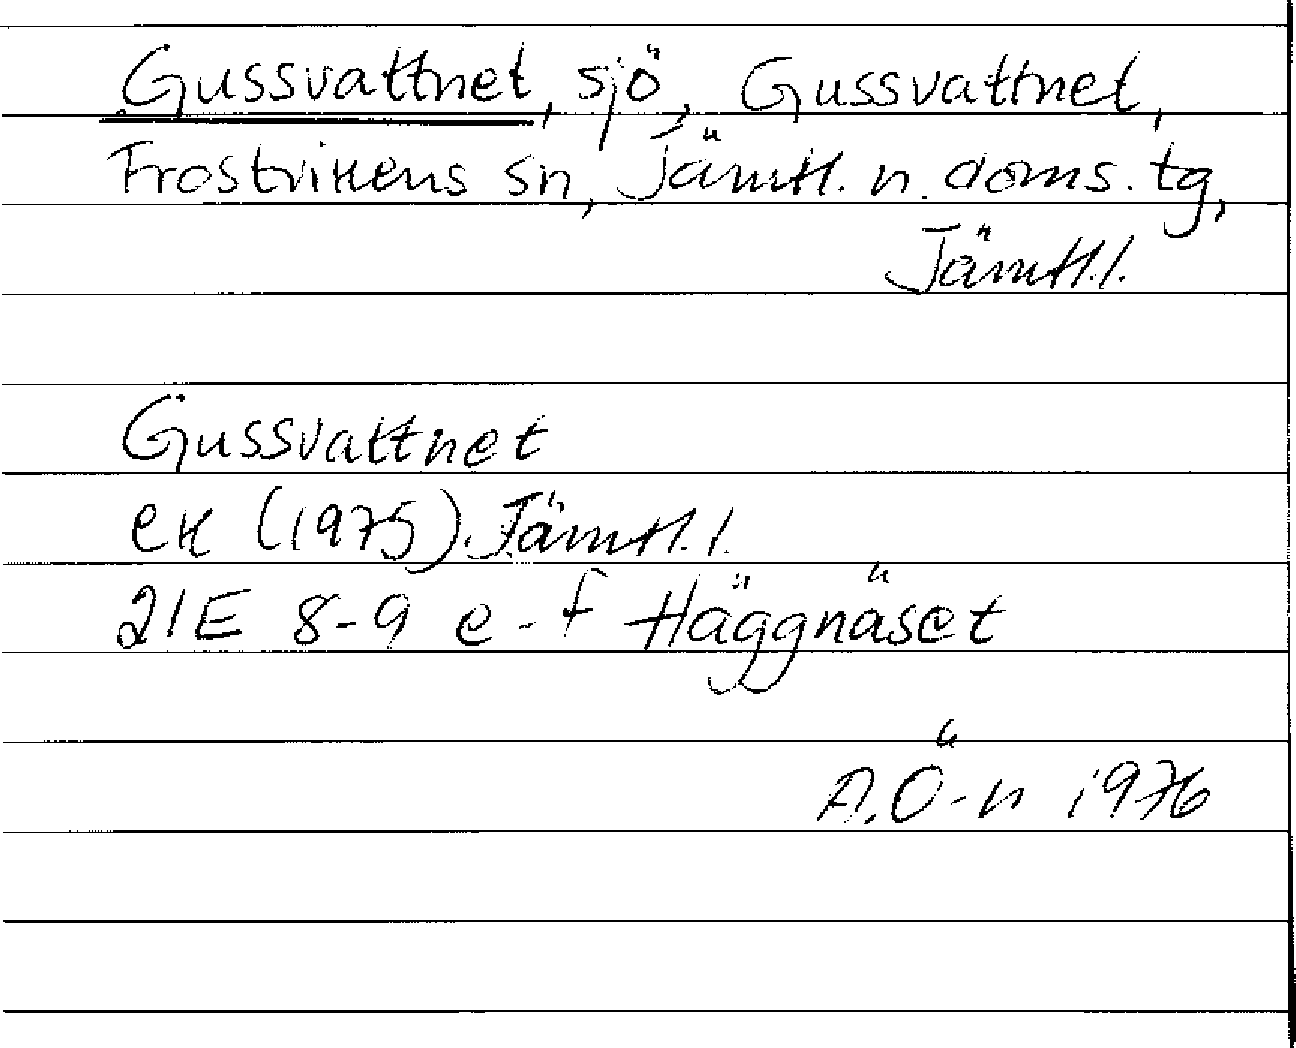 Gussvattnet, sjö, Gussvattnet,
Frostvikens sn, Jämtl. n. doms. tg,
Jämtl.l.
Gussvattnet
ek (1975). Jämtl.l.
21E 8-9 e-f Häggnäset
A.Ö-n 1976